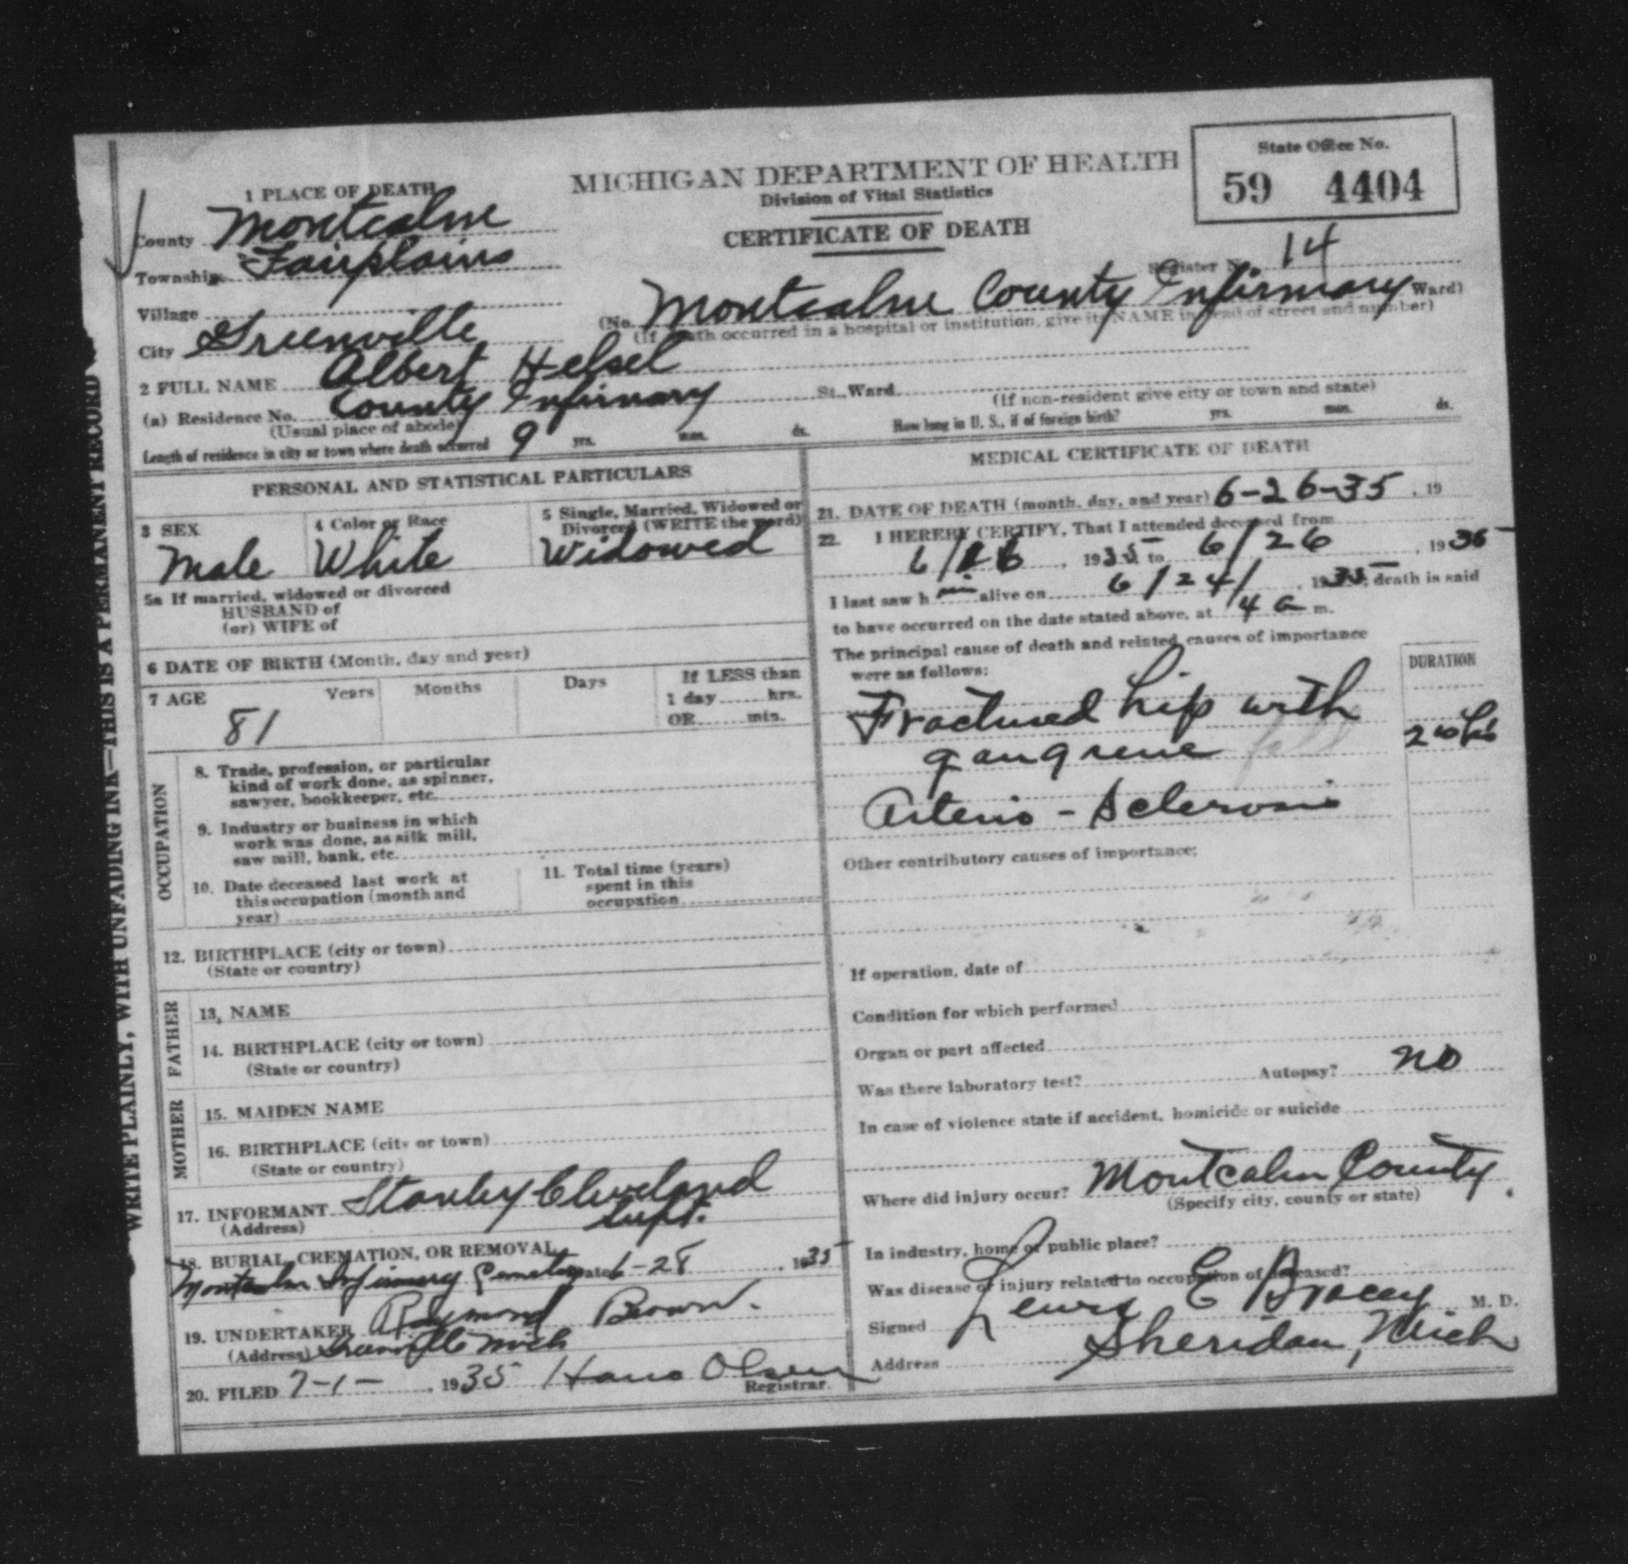 State Office No.
59 4404
MICHIGAN DEPARTMENT OF HEALTH
Division of Vital Statistics
CERTIFICATE OF DEATH
1 PLACE OF DEATH
County Montcalm
Township Fairplains
Village
City Greenville
Register No. 14
(No. Montcalm County Infirmary Ward)
(If death occurred in a hospital or institution, give its NAME instead of street and number)
2 FULL NAME Albert Helsel
(a) Residence No. County Infirmary St. Ward
(Usual place of abode) (If non-resident give city or town and state)
Length of residence in city or town where death occurred 9 yrs. mos. ds. How long in U. S., if of foreign birth? yrs. mos. ds.
WRITE PLAINLY, WITH UNFADING INK—THIS IS A PERMANENT RECORD
PERSONAL AND STATISTICAL PARTICULARS
3 SEX
Male
4 Color or Race
White
5 Single, Married, Widowed or
Divorced (WRITE the word)
Widowed
5a If married, widowed or divorced
HUSBAND of
(or) WIFE of
6 DATE OF BIRTH (Month, day and year)
7 AGE Years Months Days If LESS than
1 day hrs.
OR min.
81
OCCUPATION
8. Trade, profession, or particular
kind of work done, as spinner,
sawyer, bookkeeper, etc.
9. Industry or business in which
work was done, as silk mill,
saw mill, bank, etc.
10. Date deceased last work at
this occupation (month and
year)
11. Total time (years)
spent in this
occupation
12. BIRTHPLACE (city or town)
(State or country)
FATHER
13. NAME
14. BIRTHPLACE (city or town)
(State or country)
MOTHER
15. MAIDEN NAME
16. BIRTHPLACE (city or town)
(State or country)
17. INFORMANT Stanley Cleveland
(Address) Supt.
18. BURIAL, CREMATION, OR REMOVAL
Montcalm Infirmary Cemetery Date 6-28, 1935
19. UNDERTAKER Raymond Brown.
(Address) Greenville Mich
20. FILED 7-1-, 1935 Hans Olsen
Registrar.
MEDICAL CERTIFICATE OF DEATH
21. DATE OF DEATH (month, day, and year) 6-26-35, 19
22. I HEREBY CERTIFY, That I attended deceased from
6/ , 1935 to 6/26, 1935
I last saw him alive on 6/24/, 1935, death is said
to have occurred on the date stated above, at 4 a m.
The principal cause of death and related causes of importance
were as follows:
DURATION
Fractured hip with
gangrene fall
2 wks
Arterio-Sclerosis
Other contributory causes of importance:
If operation, date of
Condition for which performed
Organ or part affected
Was there laboratory test? Autopsy? no
In case of violence state if accident, homicide or suicide
Where did injury occur? Montcalm County.
(Specify city, county or state)
In industry, home or public place?
Was disease or injury related to occupation of deceased?
Signed Lewis E Bracey M. D.
Address Sheridan, Mich